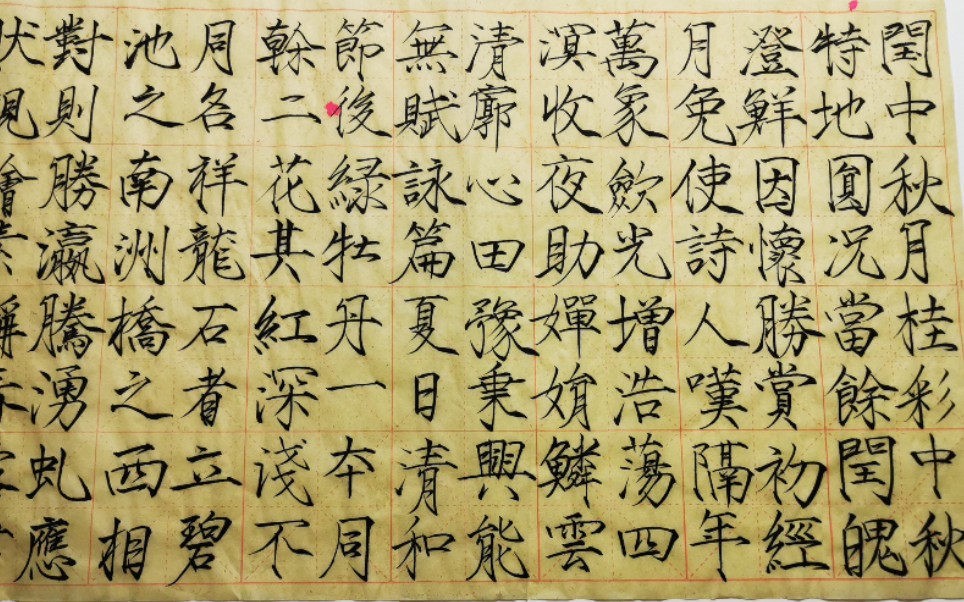 閏中秋月桂彩中秋
特地圓况當餘閏魄
澄鮮因懷勝賞初經
月免使詩人嘆隔年
萬象歛光增浩蕩四
溟收夜助嬋娟鱗雲
清廓心田豫秉興能
無賦詠篇夏日清和
節後緑牡丹一本同
榦二花其紅深淺不
同各祥龍石者立碧
池之南洲橋之西相
對則勝瀛騰湧虬應